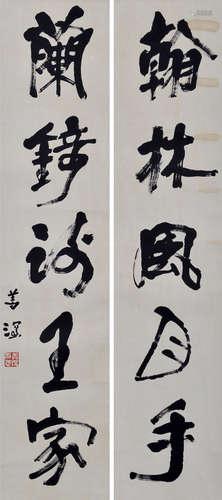 翰林風月手
蘭錡謝王家